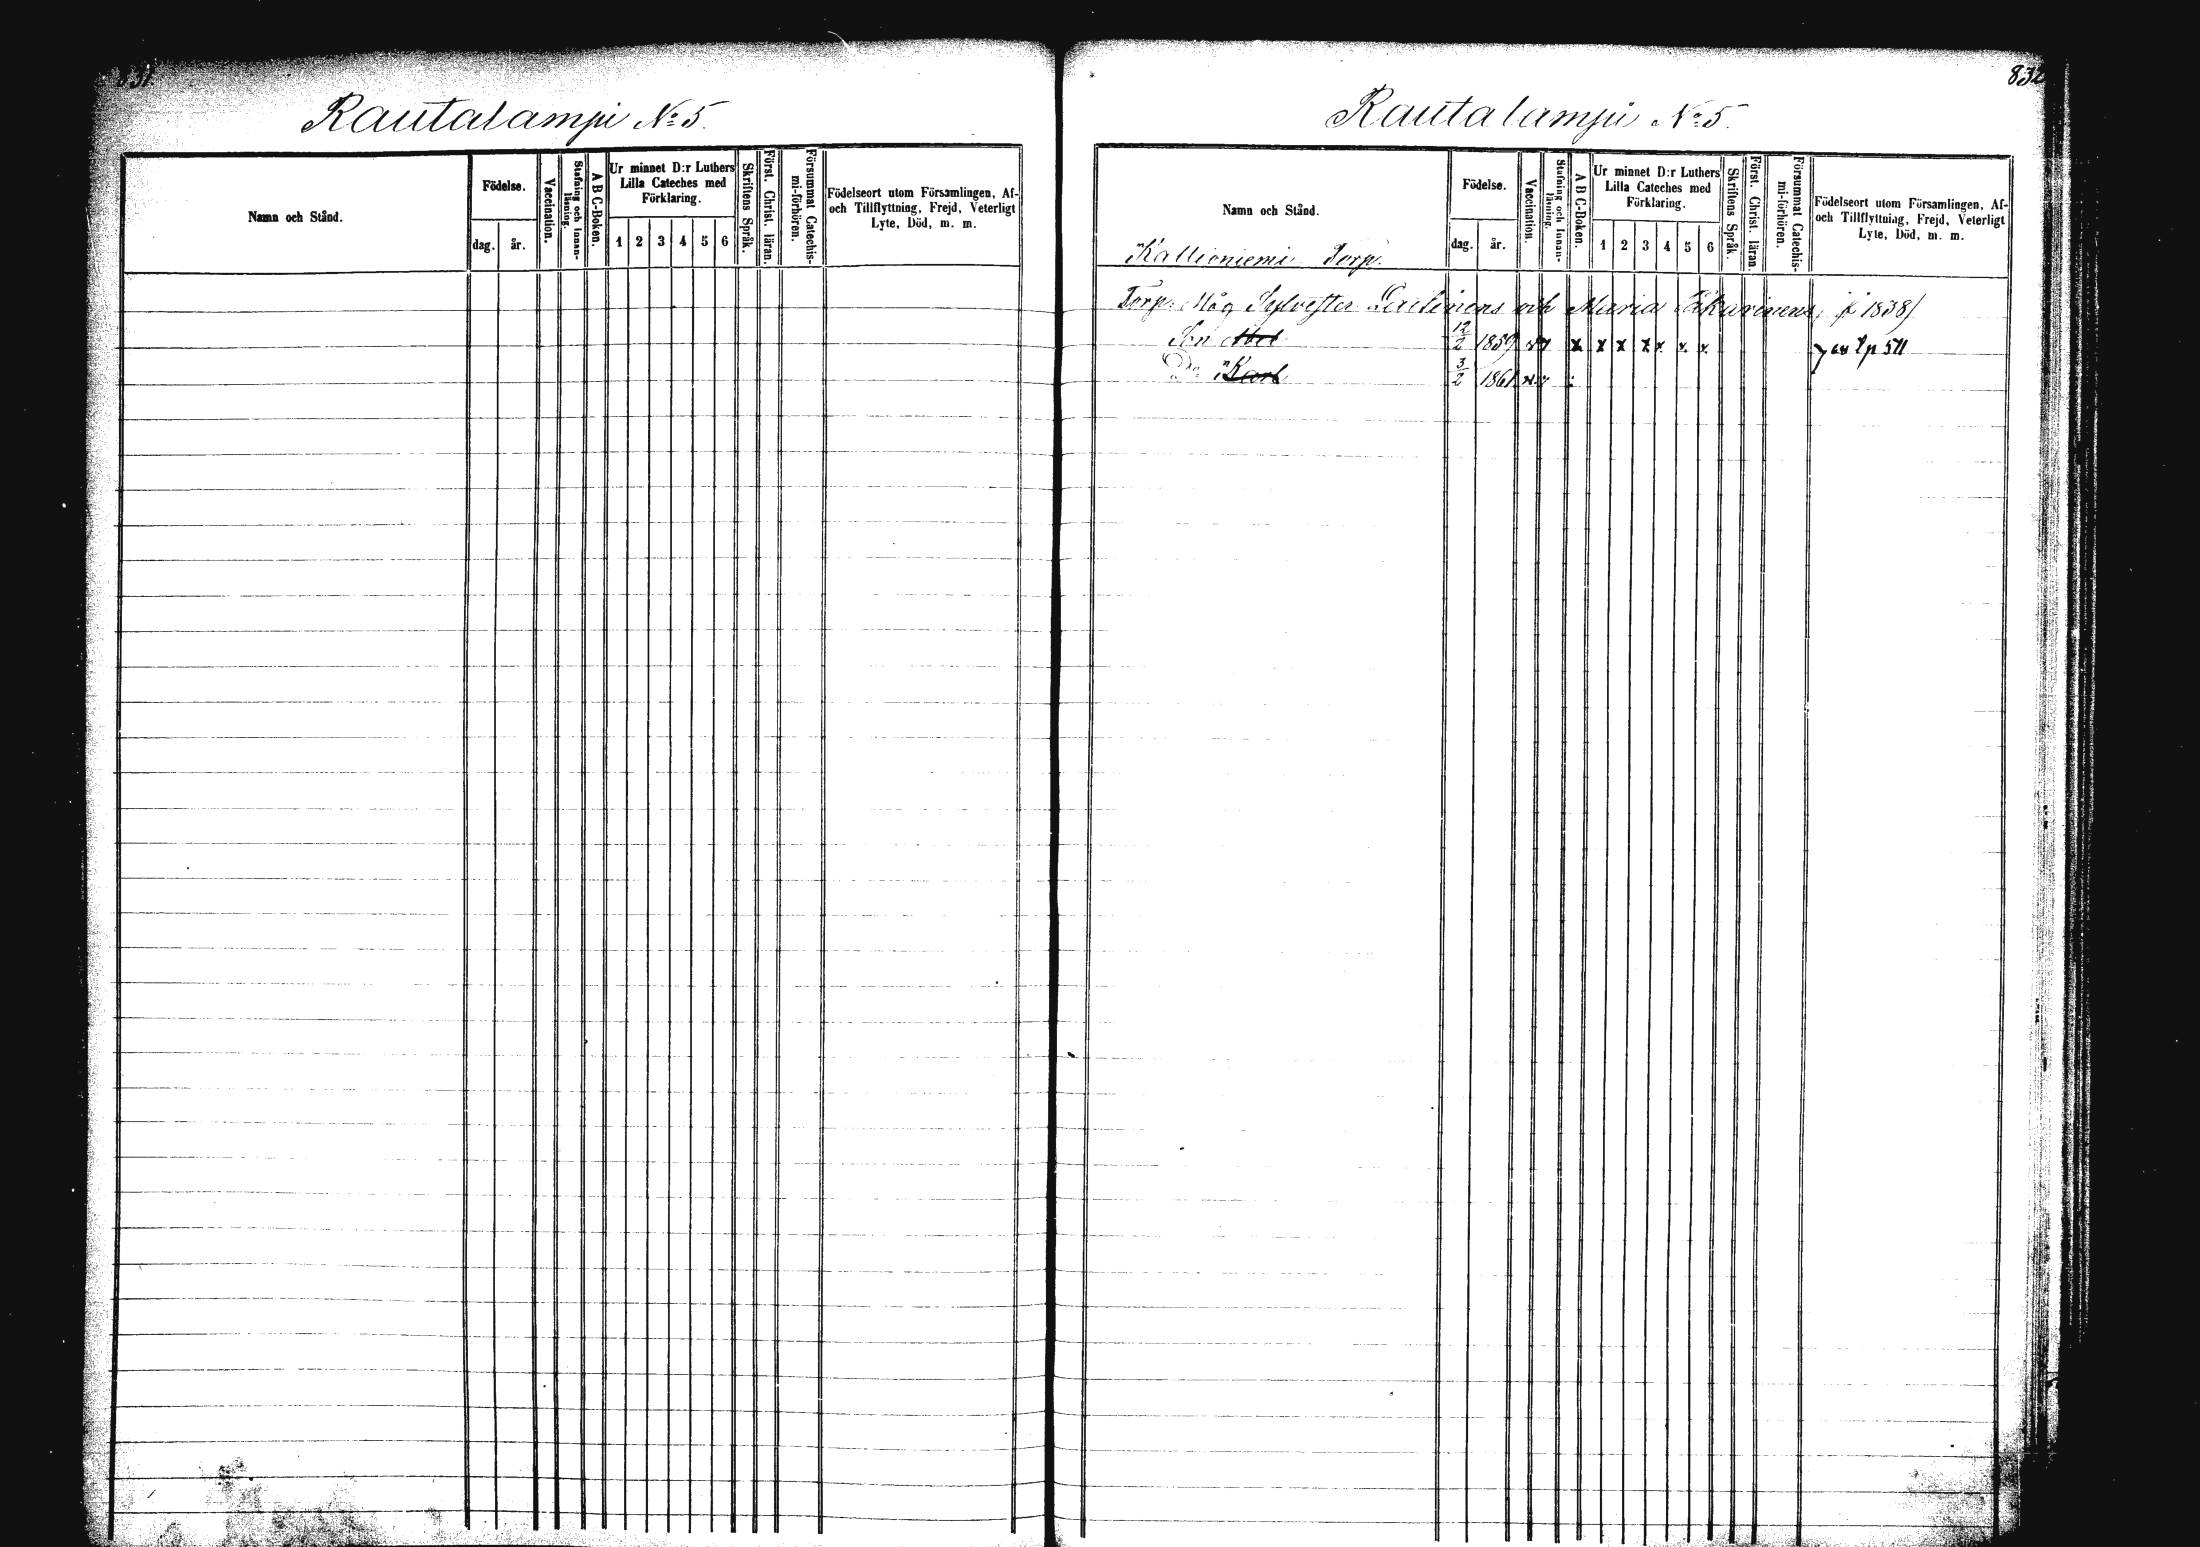 831
Rautalampi No 5.
Namn och Stånd.
Födelse.
dag.
år.
Vaccination.
Stafning och Innan-
läsning.
A B C-Boken.
Ur minnet D:r Luthers
Lilla Cateches med
Förklaring.
1 2 3 4 5 6
Skriftens Språk.
Först. Christ. läran.
Försummat Catechis-
mi-förhören.
Födelseort utom Församlingen, Af-
och Tillflyttning, Frejd, Veterligt
Lyte, Död, m. m.
832
Rautalampi No 5.
Namn och Stånd.
Kallioniemi Torp.
Födelse.
dag.
år.
Vaccination.
Stafning och Innan-
läsning.
A B C-Boken.
Ur minnet D:r Luthers
Lilla Cateches med
Förklaring.
1 2 3 4 5 6
Skriftens Språk.
Först. Christ. läran.
Försummat Catechis-
mi-förhören.
Födelseort utom Församlingen, Af-
och Tillflyttning, Frejd, Veterligt
Lyte, Död, m. m.
Torp. Måg Sylvester och Maria 1838)
Son Abel 12/2 1859 x x x x x x x p 511
Do Karl 3/2 1861